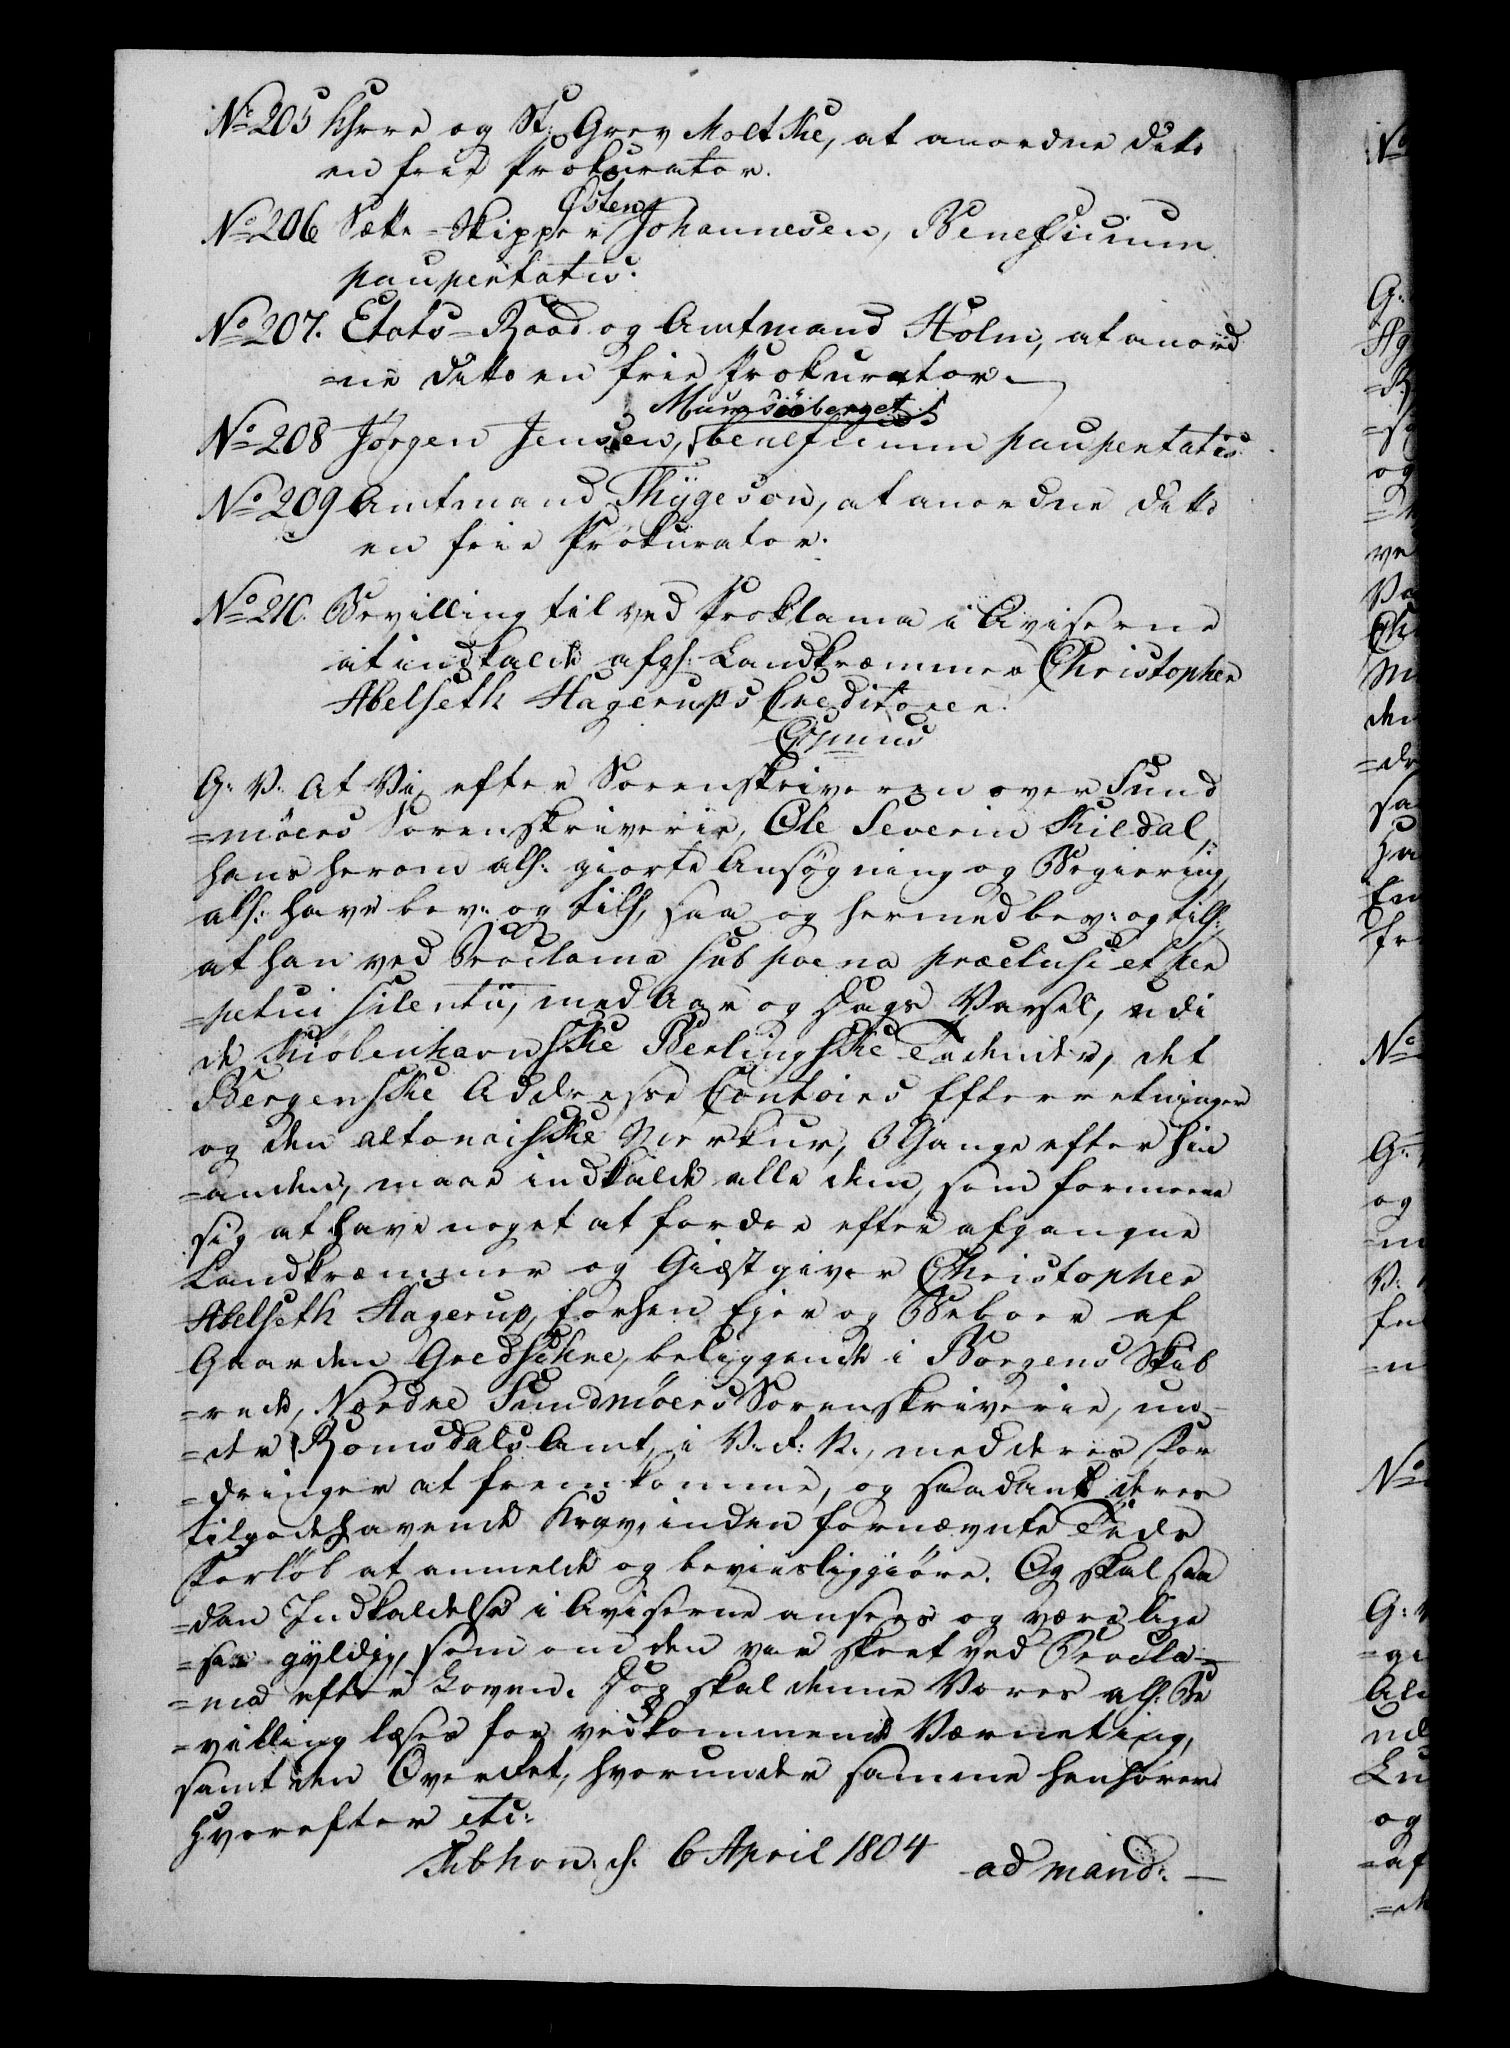 No 205 Khrre og St: Grev Moltke, at anordne dito
en frie Prokurator.
Østen
No 206 Sækr-Skipper Johannesen, Beneficium
paupertatis.
No 207. Etats-Raad og Amtmand Holm, at anord
=ne dito en frie Prokurator.
No 208 Jørgen Jensen, beneficium paupertatis
No 209 Amtmand Thygeson, at anordne dito
en frie Prokurator.
No 210. Bevilling til ved Proklama i Aviserne
at indkalde afg: Landkræmmer Christopher
Abelseth Hagerups Creditorer.
G: V: At Vi efter Sorenskriveren over Sund
=møers Sorenskriverie, Ole Severin Kildal,
hans herom alh: giorte Ansøgning og Begiering,
alh: have bev: og tilh, saa og hermed bev: og tilh:
at han ved Proclama sub poena præclusi et per
=petui silentii, med Aar og Dags Varsel, udi
de Kiøbenhavnske Berlingske Tidender, det
Bergenske Addresse Contoirs Efterretninger
og den altonaiske Merkur, 3 Gange efter hin
=anden, maae indkalde alle dem, som formeene
sig at have noget at fordre efter afgangne
Landkræmmer og Giæstgiver Christopher
Abelseth Hagerup, forhen Ejer og Beboer af
Gaarden Gredsikne, beliggende i Borgens Skib
=rede, Nordre Sundmøers Sorenskriverie, un
=der Romsdals Amt, i V. R: N:, med deres For
=dringer at fremkomme, og saadant deres
tilgodehavende Krav, inden fornævnte Tids
Forløb at anmelde og bevisliggiøre. Og skal saa
=dan Indkaldelse i Aviserne ansees og være lige
=saa gyldig, som om den var skeet ved Procla=
=ma efter Loven. Dog skal denne Vores alh: Be
=villing læses for vedkommende Værneting,
samt den Overret, hvorunder samme henhører
Hvorefter etc:
Kbhvn. d. 6 April 1804 ad mand: